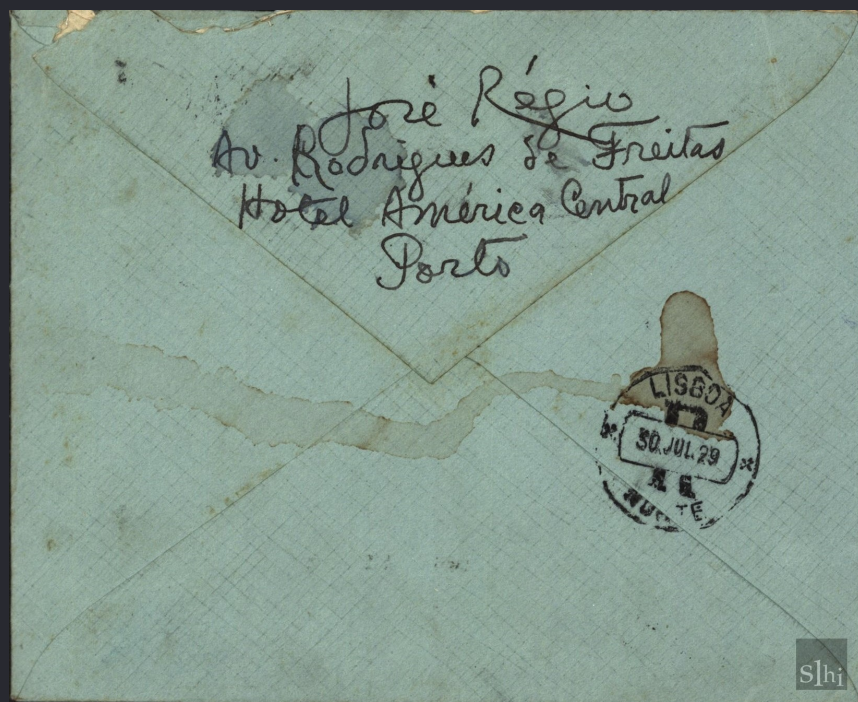 José Régio
Av. Rodrigues de Freitas
Hotel América Central
Porto
LISBOA
30.JUL.29
NORTE
S1hi